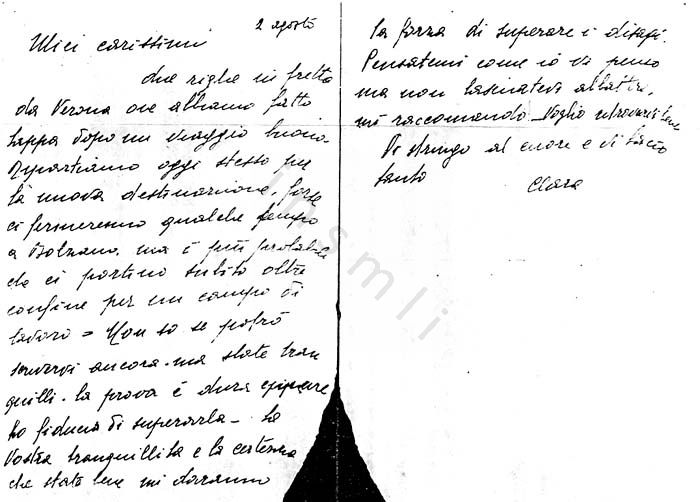 2 agosto
Miei carissimi
due righe in fretta
da Verona ove abbiamo fatto
tappa dopo un viaggio buono.
Ripartiamo oggi stesso per
la nuova destinazione, forse
ci fermeremo qualche tempo
a Bolzano, ma è più probabile
che ci portino subito oltre
confine per un campo di
lavoro = Non so se potrò
scrivervi ancora, ma state tran
quilli. La prova è dura eppure
ho fiducia di superarla - La
vostra tranquillità e la certezza
che state bene mi daranno
la forza di superare i disagi.
Pensatemi come io vi penso
ma non lasciatevi abbattere,
mi raccomando. Voglio ritrovarvi bene
Vi stringo al cuore e vi bacio
tanto
Clara
insmli